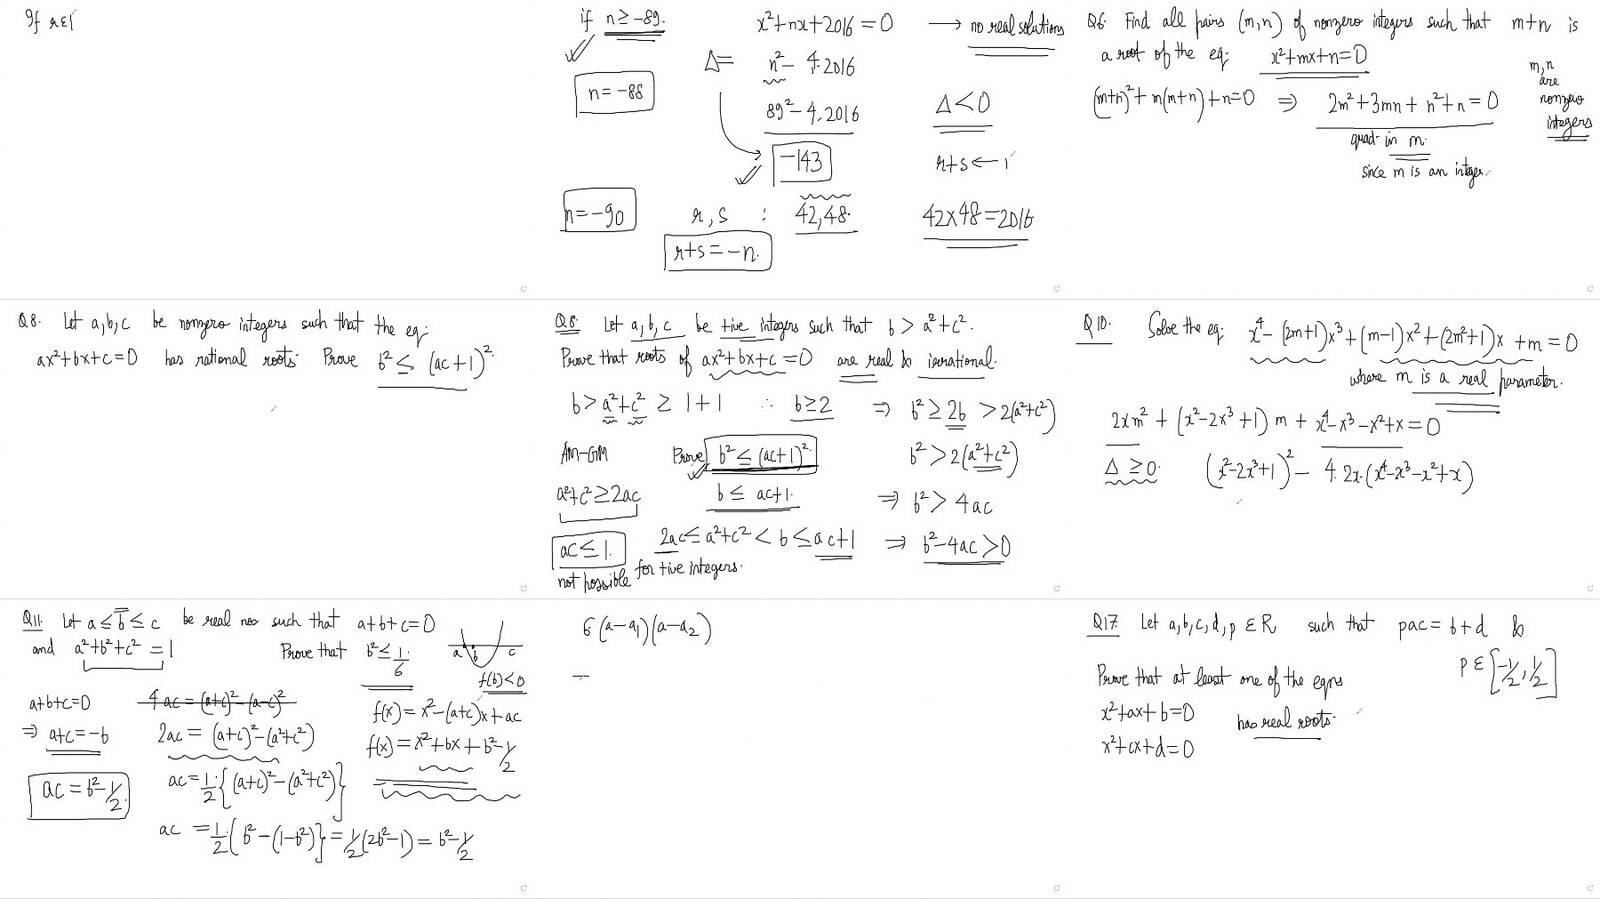 If r≤1
if n ≥ -89.
n = -88
n = -90
x² + nx + 2016 = 0 → no real solutions
Δ = n² - 4.2016
89² - 4.2016 Δ < 0
-143 r+s ←
r, s : 42,48. 42×48 = 2016
r+s = -n.
Q6. Find all pairs (m,n) of nonzero integers such that m+n is
a root of the eq. x²+mx+n=0
m,n are nonzero integers
(m+n)² + m(m+n) + n = 0 ⇒ 2m² + 3mn + n² + n = 0
quad in m.
since m is an integer.
Q8. Let a,b,c be nonzero integers such that the eq.
ax²+bx+c=0 has rational roots. Prove b² ≤ (ac+1)².
Q8. Let a,b,c be +ive integers such that b > a²+c².
Prove that roots of ax²+bx+c=0 are real & irrational.
b > a²+c² ≥ 1+1 ∴ b≥2 ⇒ b² ≥ 2b > 2(a²+c²)
AM-GM Prove b² ≤ (ac+1)². b² > 2(a²+c²)
a²+c² ≥ 2ac b ≤ ac+1. ⇒ b² > 4ac
ac ≤ 1. 2ac ≤ a²+c² < b ≤ ac+1 ⇒ b²-4ac>0
not possible for +ive integers.
Q10. Solve the eq. x⁴ - (2m+1)x³ + (m-1)x² + (2m²+1)x + m = 0
where m is a real parameter.
2xm² + (x²-2x³+1) m + x⁴-x³-x²+x = 0
Δ ≥ 0. (x²-2x³+1)² - 4.2x.(x⁴-x³-x²+x)
Q11. Let a ≤ b ≤ c be real nos such that a+b+c=0
and a²+b²+c² = 1 Prove that b² ≤ 1/6
a b c
f(b)<0
a+b+c=0 4ac = (a+c)² - (a-c)² f(x) = x² - (a+c)x + ac
⇒ a+c = -b 2ac = (a+c)² - (a²+c²) f(x) = x² + bx + b² - 1/2
ac = b² - 1/2. ac = 1/2.{(a+c)² - (a²+c²)}
ac = 1/2.{b² - (1-b²)} = 1/2(2b²-1) = b² - 1/2
6(a-a₁)(a-a₂)
Q17. Let a,b,c,d,p ∈ R such that pac = b+d &
p ∈ [-1/2, 1/2]
Prove that at least one of the eqns
x²+ax+b=0
has real roots.
x²+cx+d=0